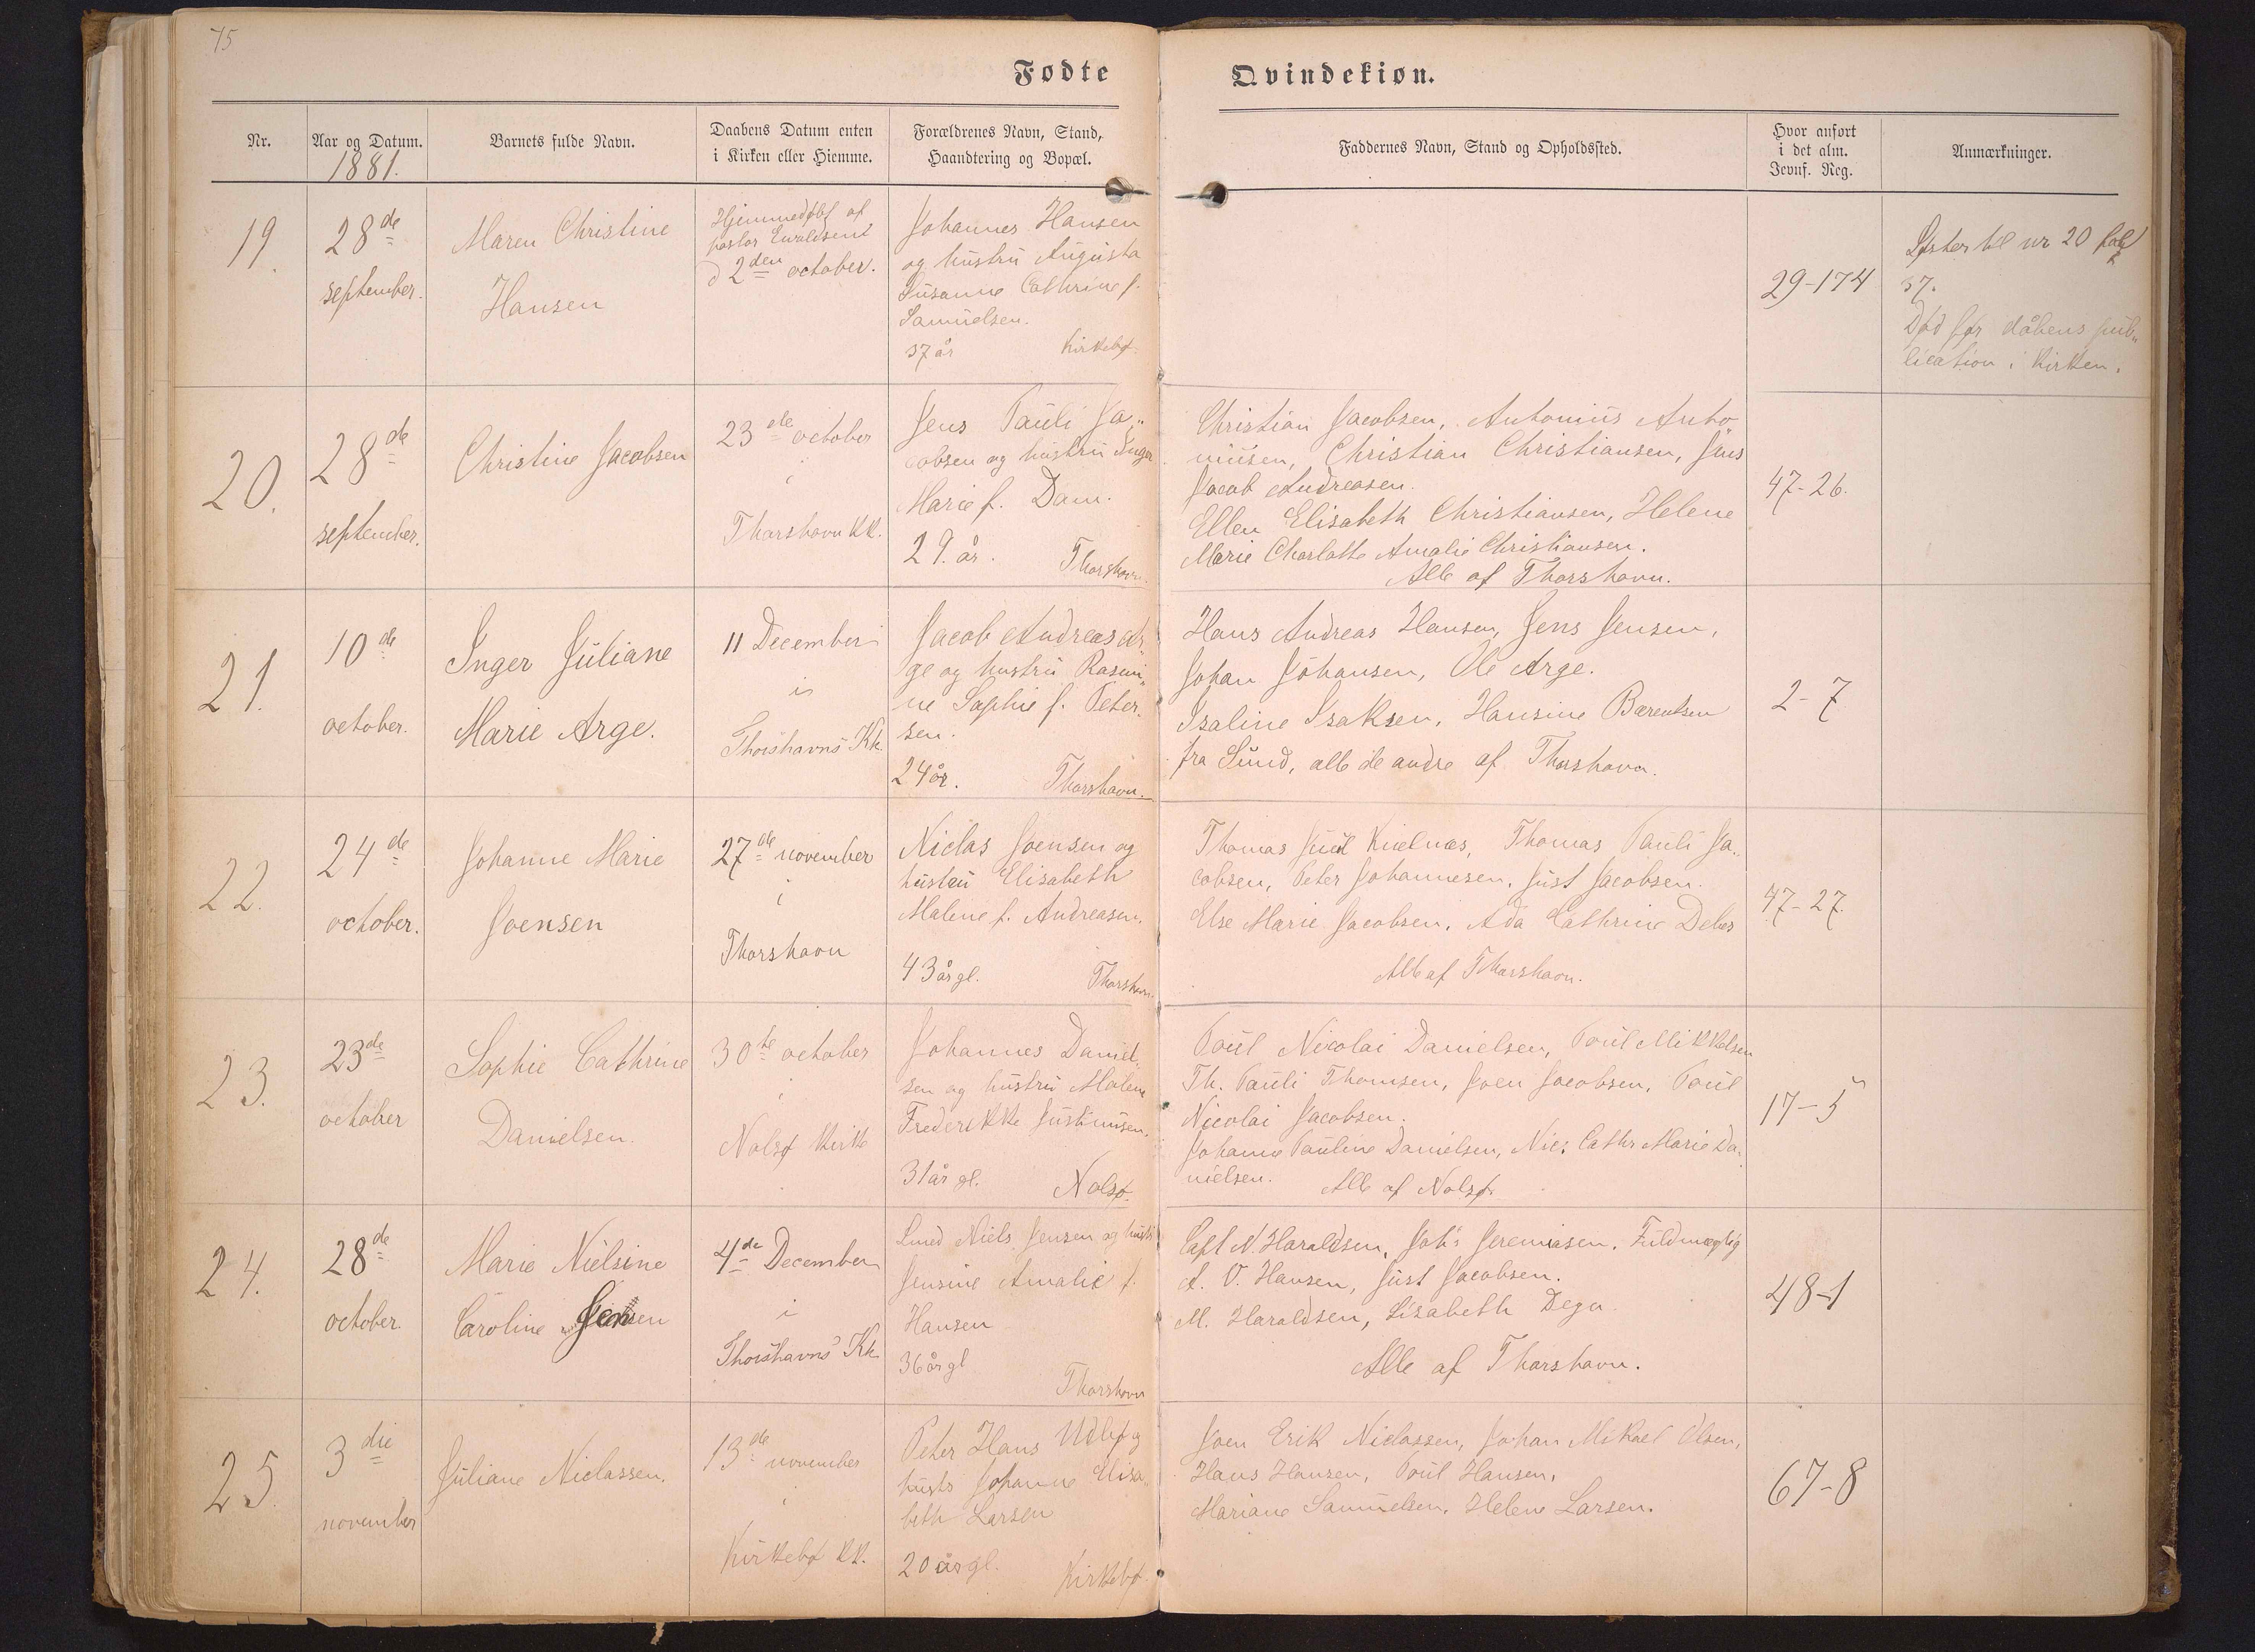 75
Fødte
Qvindekiøn.
Nr.
Aar og Datum.
1881.
Barnets fulde Navn.
Daabens Datum enten
i Kirken eller Hiemme.
Forældrenes Navn, Stand,
Haandtering og Bopæl.
Faddernes Navn, Stand og Opholdssted.
Hvor anført
i det alm.
Jevnf. Reg.
Anmærkninger.
19.
28de
september.
Maren Christine
Hansen
Hjemmedøbt af
pastor Evaldsent
d 2den october.
Johannes Hansen
og hustru Augusta
Susanne Cathrine f.
Samuelsen.
37 år Kirkebø.
29-174
Søster til nr 20 fol
37.
Død før dåbens pub„
lication i Kirken.
20.
28de
september.
Christine Jacobsen
23de october
i
Thorshavn KK.
Jens Pauli Ja„
cobsen og hustru Inger
Marie f. Dam.
29. år. Thorshavn.
Christian Jacobsen, Antonius Anto„
niusen, Christian Christiansen, Jens
Jacob Andreasen.
Ellen Elisabeth Christiansen, Helene
Marie Charlotte Amalie Christiansen.
Alle af Thorshavn.
47-26.
21.
10de
october.
Inger Juliane
Marie Arge.
11 December
i
Thorshavns Kk.
Jacob Andreas Ar„
ge og hustru Rasmi„
ne Sophie f. Peter„
sen.
24 år. Thorshavn.
Hans Andreas Hansen, Jens Jensen,
Johan Johansen, Ole Arge.
Isaline Isaksen, Hansine Bærentsen
fra Sund, alle de andre af Thorshavn.
2-7
22.
24de
october.
Johanne Marie
Joensen
27de november
i
Thorshavn
Niclas Joensen og
hustru Elisabeth
Malene f. Andreasen.
43 år gl. Thorshavn.
Thomas Juul Kielnæs, Thomas Pauli Ja„
cobsen, Peter Johannesen, Just Jacobsen.
Else Marie Jacobsen. Ada Cathrine Debes
Alle af Thorshavn.
47-27.
23.
23de
october
Sophie Cathrine
Danielsen.
30te october
i
Nolsø Kirke
Johannes Daniel„
sen og hustru Malene
Frederikke Justinusen.
31 år gl. Nolsø.
Poul Nicolai Danielsen, Poul Mikkelsen
Th. Pauli Thomsen, Joen Jacobsen, Poul
Nicolai Jacobsen.
Johanne Pauline Danielsen, Nic: Cathr Marie Da„
nielsen. Alle af Nolsø.
17-5
24.
28de
october.
Marie Nielsine
Caroline Jensen
4de December
i
Thorshavns Kk
Smed Niels Jensen og hustr
Jensine Amalie f.
Hansen
36 år gl
Thorshavn
Capt N. Haraldsen, Joh: Jeremiasen. Fuldmægtig
A. V. Hansen, Just Jacobsen.
M. Haraldsen, Lisabeth Degn.
Alle af Thorshavn.
48-1
25.
3die
november
Juliane Niclassen.
13de november
i
Kirkebø KK.
Peter Hans og
hustr Johanne Elisa„
beth Larsen
20 år gl. Kirkebø.
Joen Erik Niclassen, Johan Mikael Olsen,
Hans Hansen, Poul Hansen,
Mariane Samuelsen. Helene Larsen.
67-8